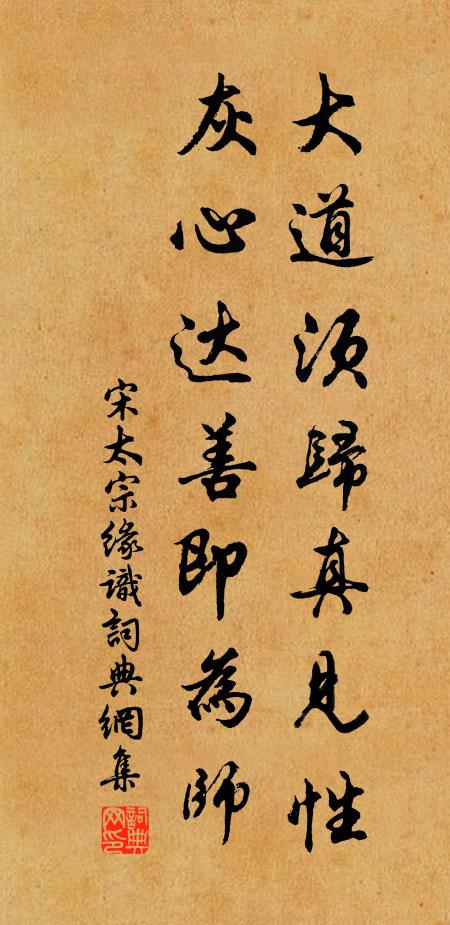 大道须歸真見性
灰心达善即為师
宋太宗缘識詞典網集
詞典网印